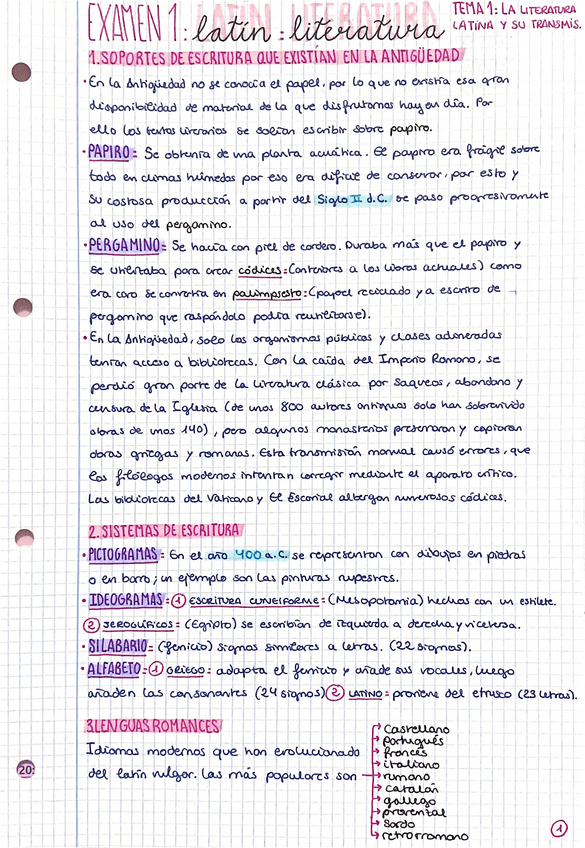 EXAMEN 1: latín: literatura
TEMA 1: LA LITERATURA
LATINA Y SU TRANSMIS.
1. SOPORTES DE ESCRITURA QUE EXISTÍAN EN LA ANTIGÜEDAD
• En la Antigüedad no se conocía el papel, por lo que no existía esa gran
disponibilidad de material de la que disfrutamos hoy en día. Por
ello los textos literarios se solían escribir sobre papiro.
• PAPIRO: Se obtenía de una planta acuática. El papiro era frágil sobre
todo en climas húmedos por eso era difícil de conservar, por esto y
su costosa producción a partir del Siglo II d.C. se paso progresivamente
al uso del pergamino.
• PERGAMINO: Se hacía con piel de cordero. Duraba más que el papiro y
se utilizaba para crear códices: (anteriores a los libros actuales) como
era caro se convertía en palimpsesto: (papel reciclado ya escrito de
pergamino que raspándolo podía reutilizarse).
• En la Antigüedad, solo los organismos públicos y clases adineradas
tenían acceso a bibliotecas. Con la caída del Imperio Romano, se
perdió gran parte de la literatura clásica por saqueos, abandono y
censura de la Iglesia (de unos 800 autores antiguos solo han sobrevivido
obras de unos 140), pero algunos monasterios preservaron y copiaron
obras griegas y romanas. Esta transmisión manual causó errores, que
los filólogos modernos intentan corregir mediante el aparato crítico.
Las bibliotecas del Vaticano y El Escorial albergan numerosos códices.
2. SISTEMAS DE ESCRITURA
• PICTOGRAMAS: En el año 400 a.C. se representan con dibujos en piedras
o en barro; un ejemplo son las pinturas rupestres.
• IDEOGRAMAS: 1 ESCRITURA CUNEIFORME: (Mesopotamia) hechos con un estilete.
2 JEROGLÍFICOS: (Egipto) se escribían de izquierda a derecha y viceversa.
• SILABARIO: (fenicio) signos similares a letras. (22 signos).
• ALFABETO: 1 GRIEGO: adapta el fenicio y añade sus vocales, luego
añaden las consonantes (24 signos) 2 LATINO: proviene del etrusco (23 letras).
3. LENGUAS ROMANCES
Idiomas modernos que han evolucionado
del latín vulgar. Las más populares son
castellano
portugués
francés
italiano
rumano
catalán
gallego
provenzal
Sardo
retrorromano
20:
1